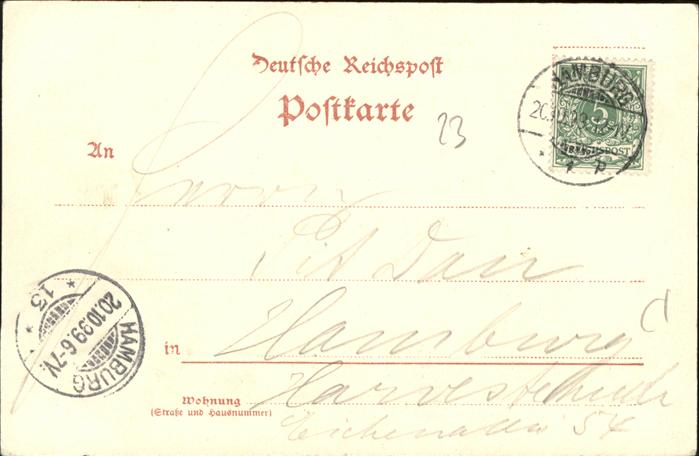 Deutsche Reichspost
Postkarte
23
HAMBURG
20.10.99
5
1 P
An
Herrn
Pit Dan
in Hamburg
Wohnung
(Straße und Hausnummer)
Harvestehude
Eichenallee 54
HAMBURG
20.10.99.6-7V.
* 13 *